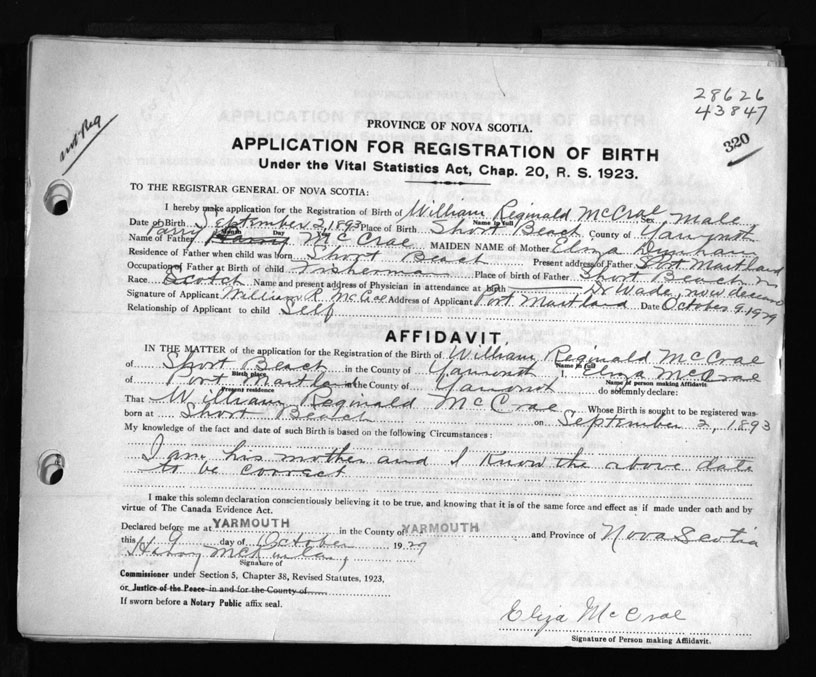 28626
43847
320
PROVINCE OF NOVA SCOTIA.
APPLICATION FOR REGISTRATION OF BIRTH
Under the Vital Statistics Act, Chap. 20, R. S. 1923.
TO THE REGISTRAR GENERAL OF NOVA SCOTIA:
I hereby make application for the Registration of Birth of William Reginald McCrae Sex Male
Name in full
Date of Birth September 2, 1893 Place of Birth Short Beach County of Yarmouth
Month Day Year
Name of Father Parry Harry McCrae MAIDEN NAME of Mother Eliza Durkee
Residence of Father when child was born Short Beach Present address of Father Port Maitland
Occupation of Father at Birth of child Fisherman Place of birth of Father Short Beach
Race Scotch Name and present address of Physician in attendance at birth Dr Wade, now deceased
Signature of Applicant William R. McCrae Address of Applicant Port Maitland Date October 9, 1929
Relationship of Applicant to child Self
AFFIDAVIT
IN THE MATTER of the application for the Registration of the Birth of William Reginald McCrae
Name in full
of Short Beach in the County of Yarmouth I, Eliza McCrae
Birth place Name of person making Affidavit
of Port Maitland in the County of Yarmouth do solemnly declare:
Present residence
That William Reginald McCrae Whose Birth is sought to be registered was
born at Short Beach on September 2, 1893
My knowledge of the fact and date of such Birth is based on the following Circumstances:
I am his mother and I know the above date
to be correct
I make this solemn declaration conscientiously believing it to be true, and knowing that it is of the same force and effect as if made under oath and by
virtue of The Canada Evidence Act.
Declared before me at YARMOUTH in the County of YARMOUTH and Province of Nova Scotia
this 9 day of October 1929
Henry
Signature of
Commissioner under Section 5, Chapter 38, Revised Statutes, 1923,
or Justice of the Peace in and for the County of
If sworn before a Notary Public affix seal.
Eliza McCrae
Signature of Person making Affidavit.